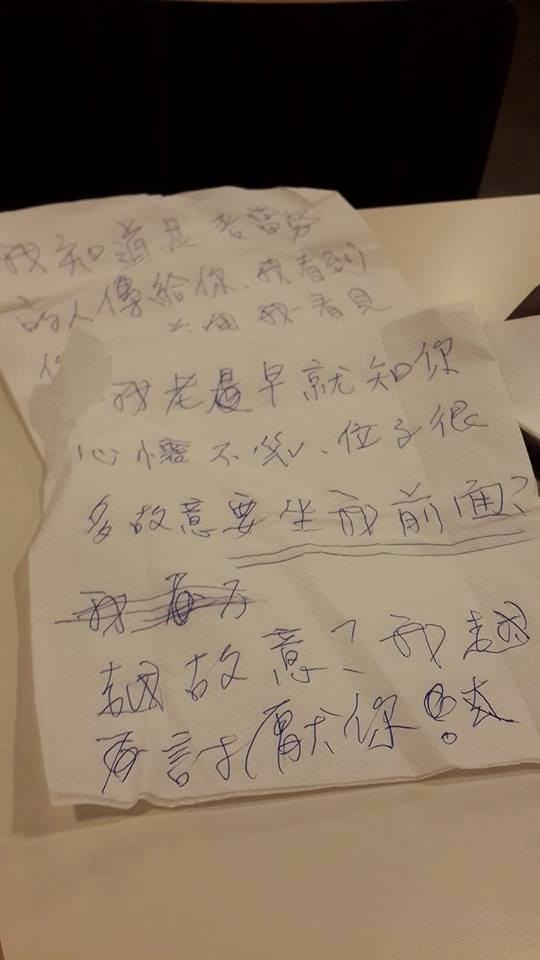 我知道是 老當勞
的人傳給你、我看到
我一看見
我老最早就知你
心懷不、位子很
多故意要坐我前面?
越故意?我越
要討厭你!